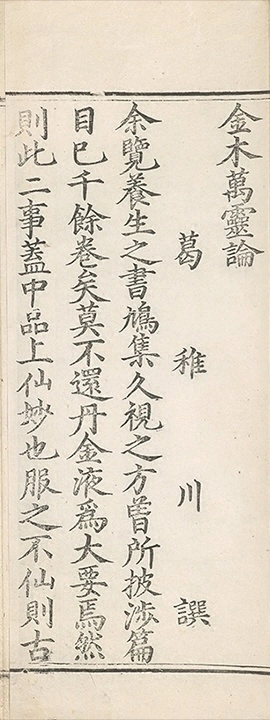 金木萬靈論
葛稚川譔
余覽養生之書鳩集久視之方曾所披涉篇
目巳千餘卷矣莫不還丹金液爲大要焉然
則此二事蓋中品上仙妙也服之不仙則古